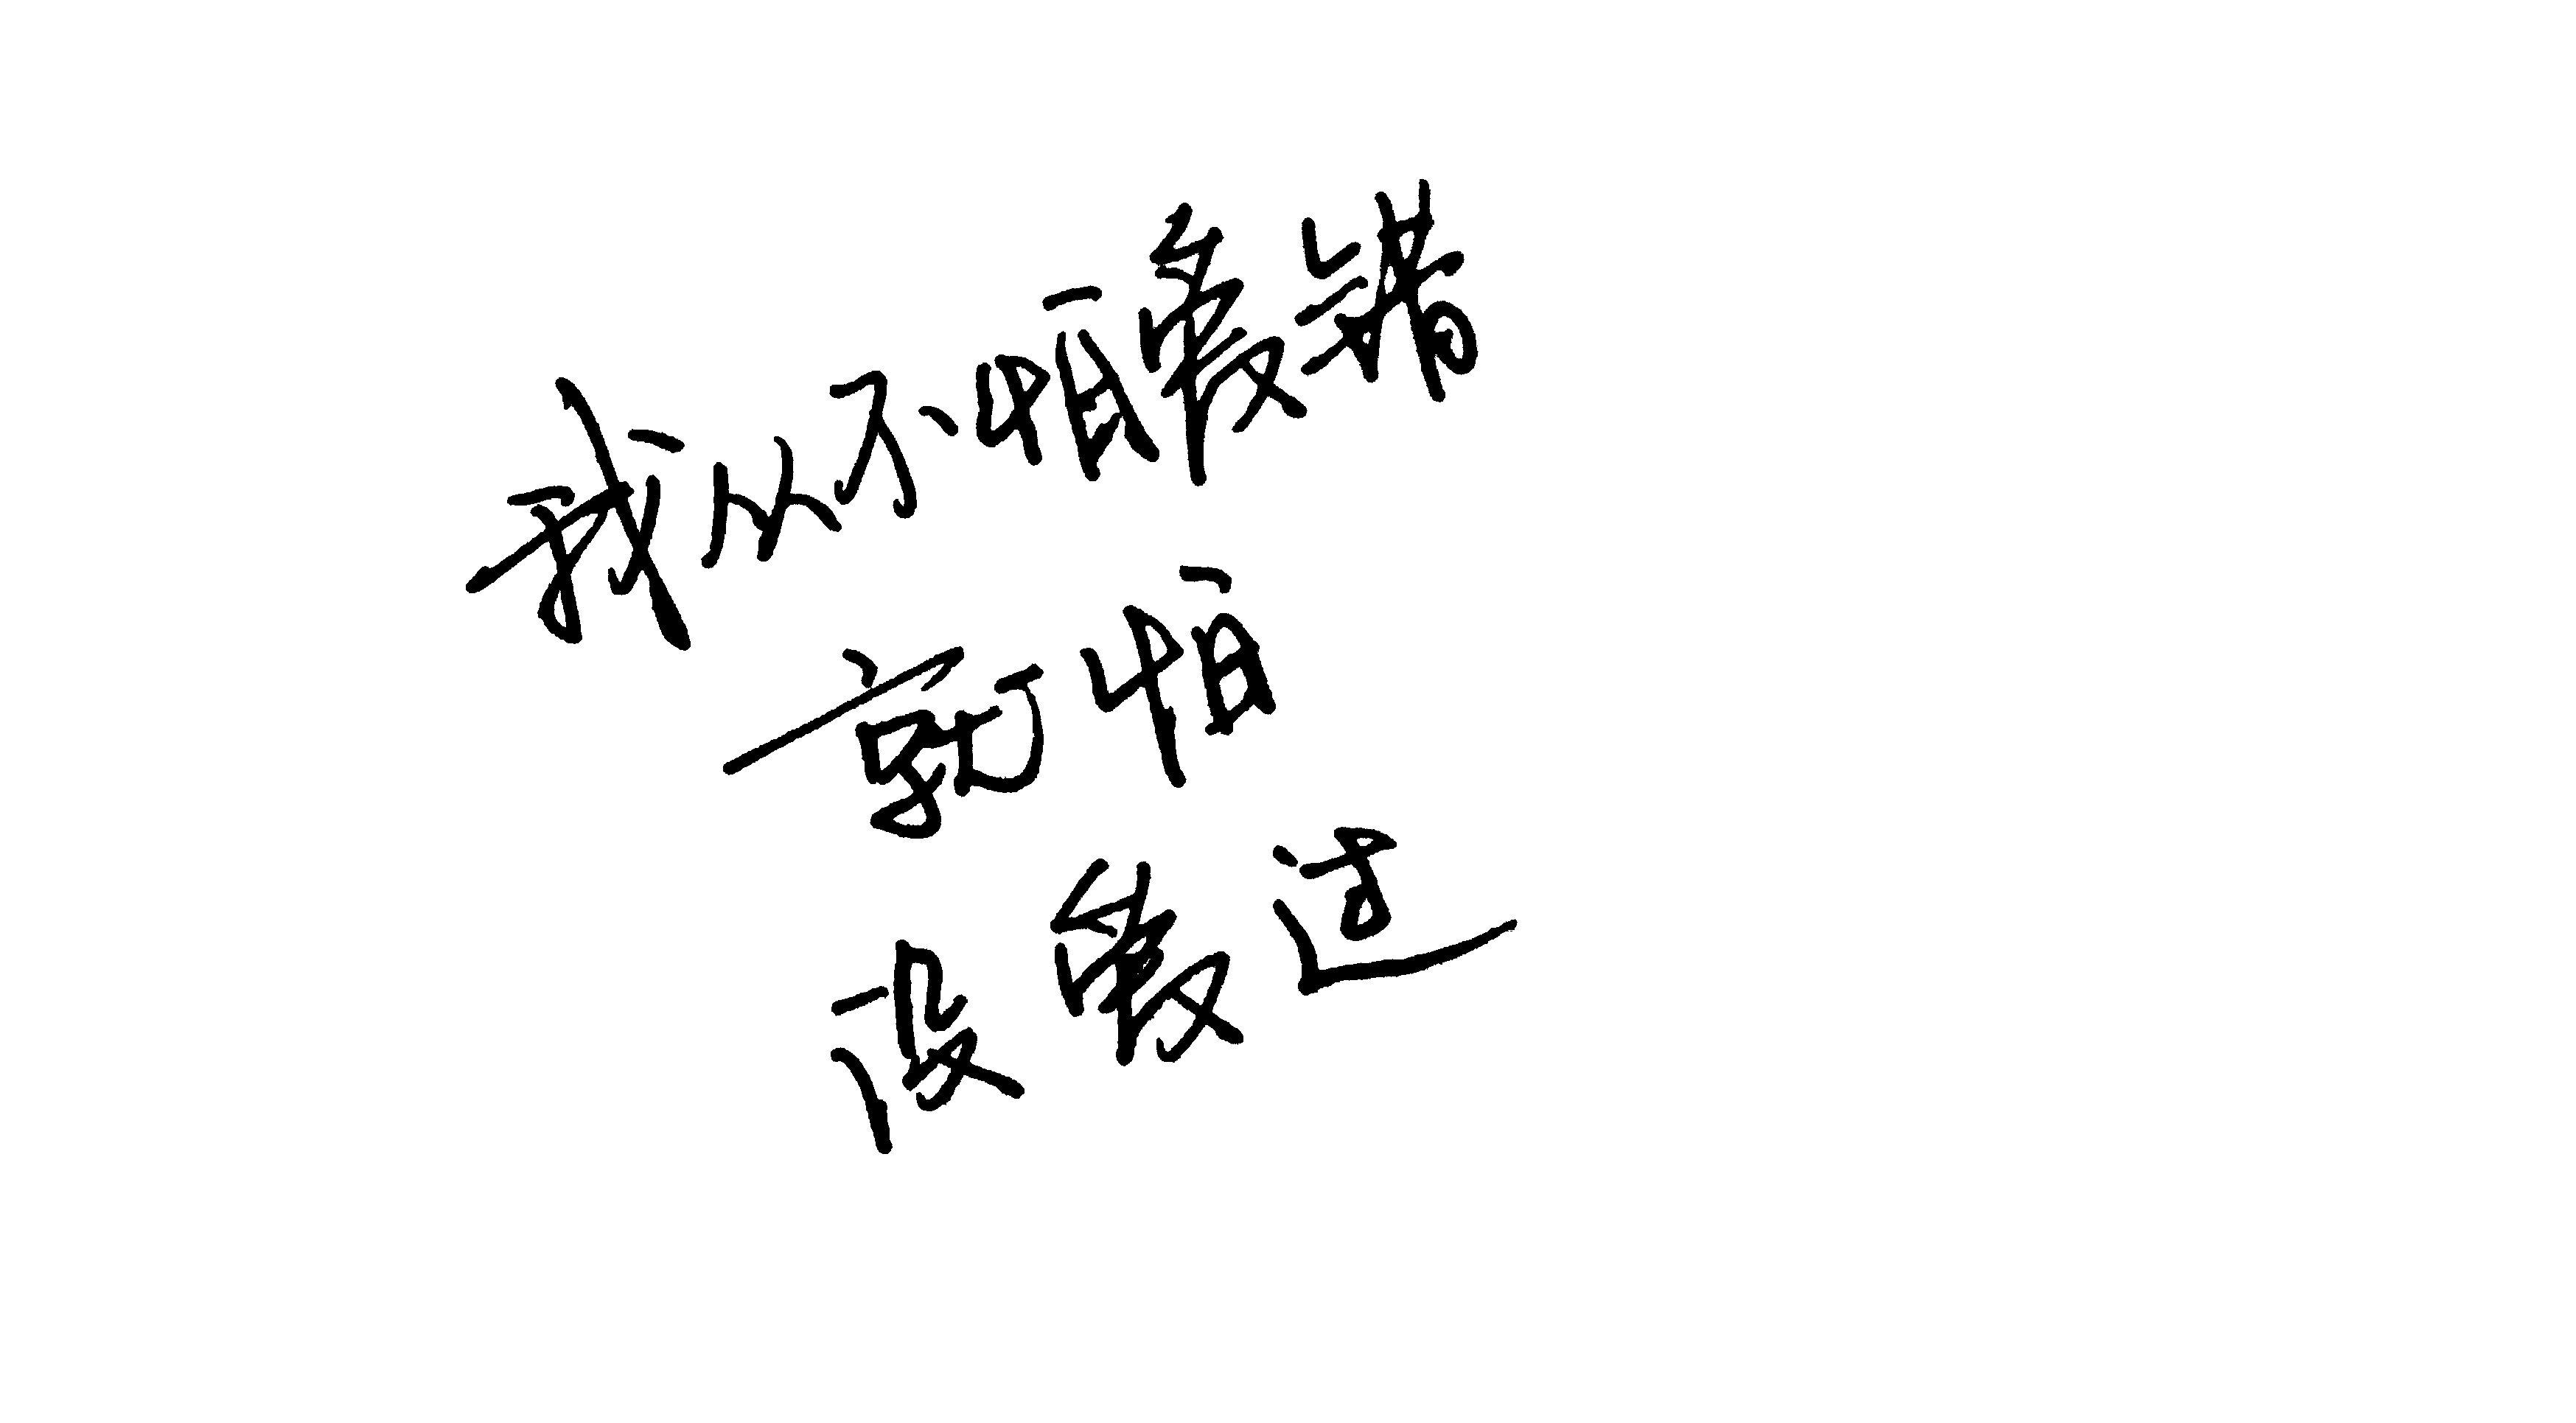 我从不怕爱错
就怕
没爱过